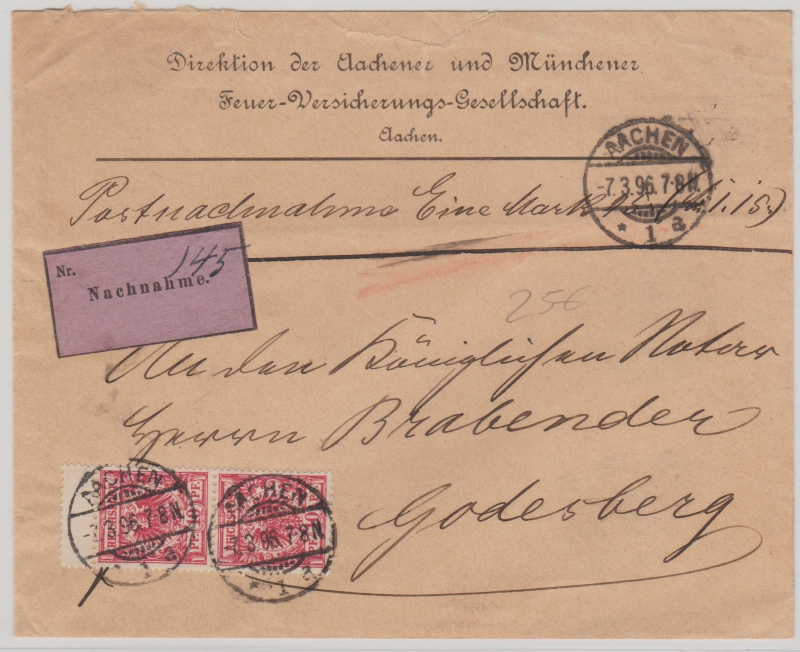 Direktion der Aachener und Münchener
Feuer-Versicherungs-Gesellschaft.
Aachen.
AACHEN
-7.3.96.7-8N.
* 1 a
Postnachnahme Eine Mark 15 (M. 1.15)
Nr. 145
Nachnahme.
256
An den Königlichen Notar
Herrn Brabender
Godesberg
AACHEN
7.3.96.7-8N.
1 a
AACHEN
7.3.96.7-8N.
* 1 a